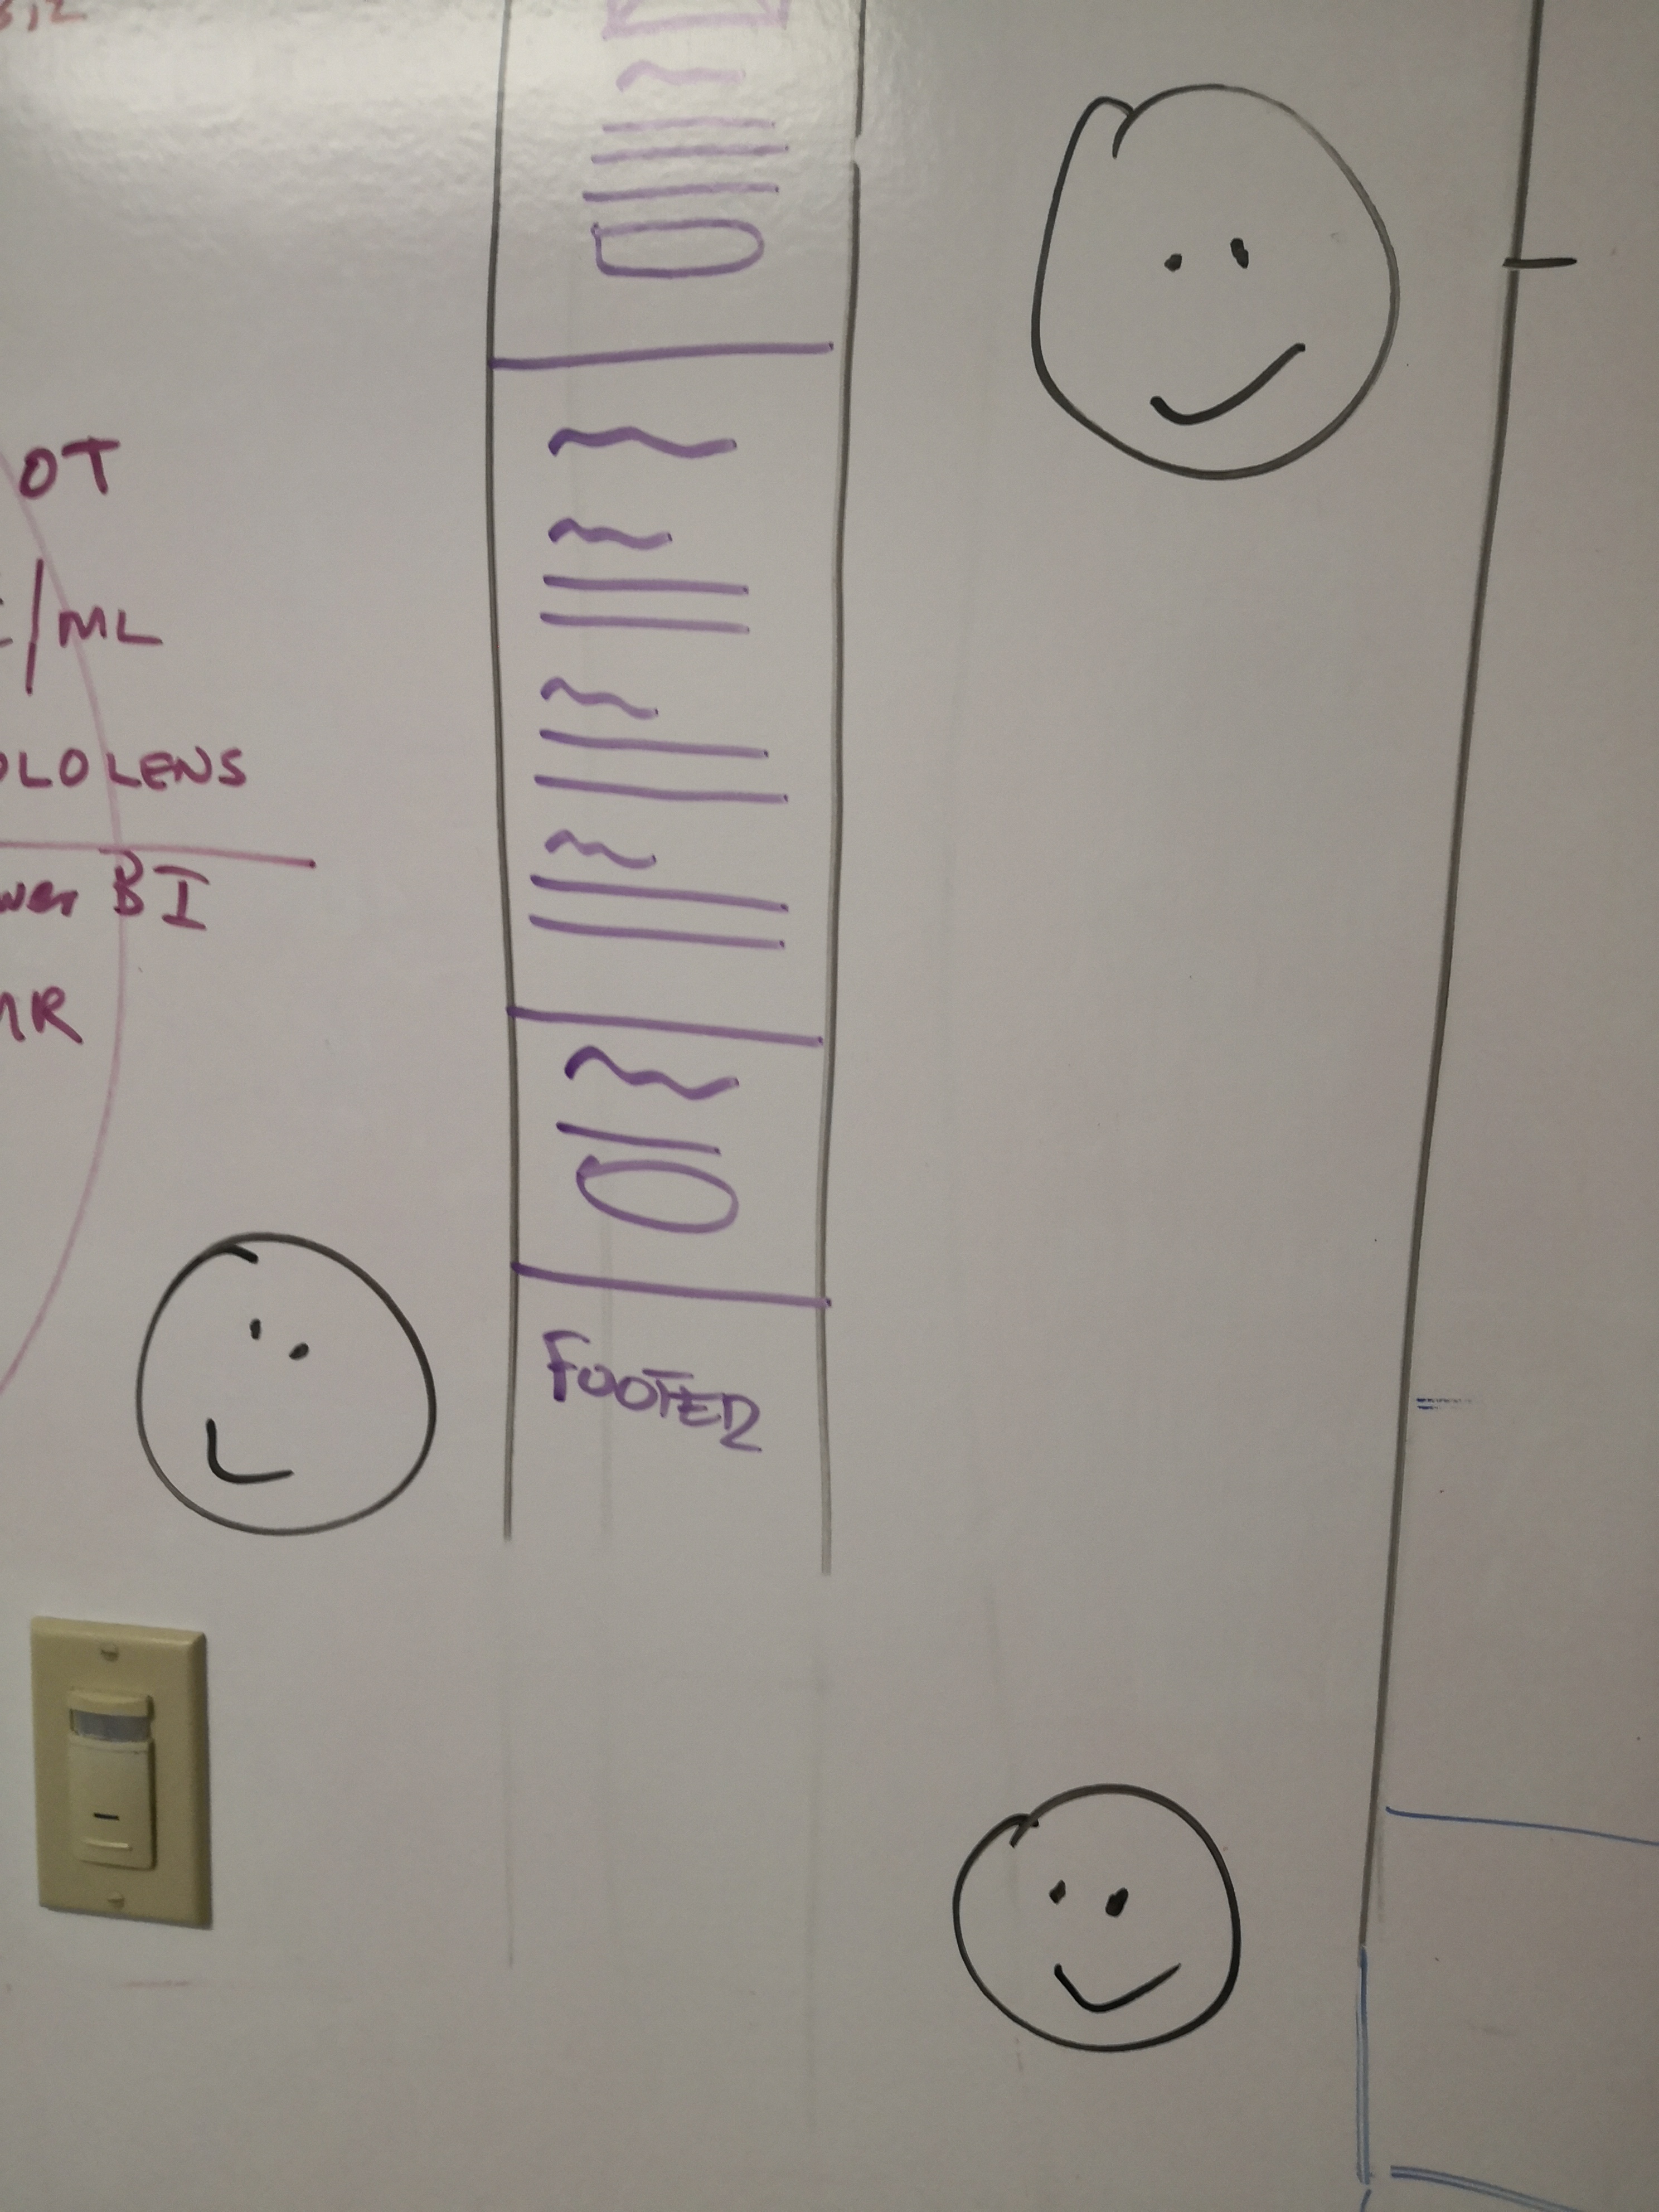 OT
/ML
OLOLENS
wer BI
MR
FOOTER